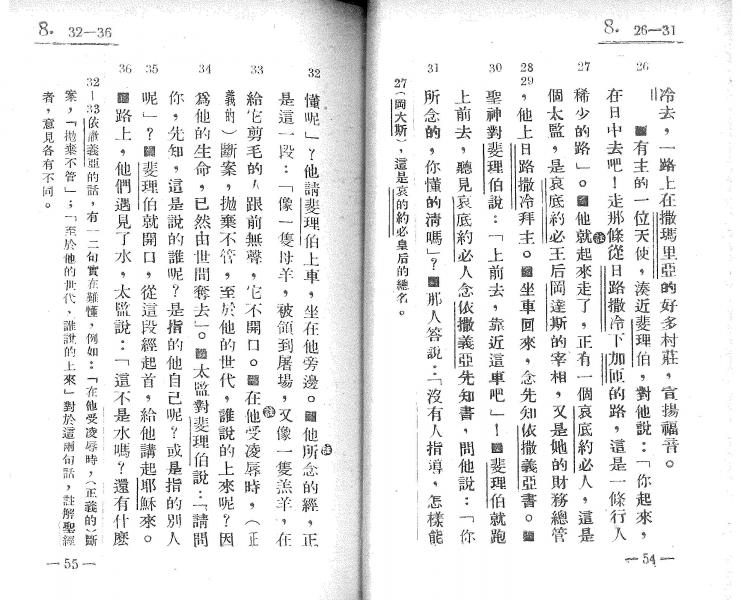 8. 26—31
冷去，一路上在撒瑪里亞的好多村莊，宣揚福音。
26 有主的一位天使，湊近斐理伯，對他說：「你起來，
在日中去吧！走那條從日路撒冷下加匝的路，這是一條行人
27 稀少的路」。他就起來走了，正有一個哀底約必人，這是
個太監，是哀底約必王后岡達斯的宰相，又是她的財務總管
28 29 ，他上日路撒冷拜主。坐車回來，念先知依撒義亞書。
30 聖神對斐理伯說：「上前去，靠近這車吧」！斐理伯就跑
上前去，聽見哀底約必人念依撒義亞先知書，問他說：「你
31 所念的，你懂的清嗎」？那人答說：「沒有人指導，怎樣能
27（岡大斯），這是哀的約必皇后的總名。
—54—
8. 32—36
32 懂呢」？他請斐理伯上車，坐在他旁邊。他所念的經，正
是這一段：「像一隻母羊，被領到屠場，又像一隻羔羊，在
33 給它剪毛的人跟前無聲，它不開口。在他受凌辱時，（正
義的）斷案，拋棄不管，至於他的世代，誰說的上來呢？因
34 為他的生命，已然由世間奪去」。太監對斐理伯說：「請問
你，先知，這是說的誰呢？是指的他自己呢？或是指的別人
35 呢」？斐理伯就開口，從這段經起首，給他講起耶穌來。
36 路上，他們遇見了水，太監說：「這不是水嗎？還有什麼
32—33依撒義亞的話，有一二句實在難懂，例如：「在他受凌辱時，（正義的）斷
案，「拋棄不管」；「至於他的世代，誰說的上來」對於這兩句話，註解聖經
者，意見各有不同。
—55—